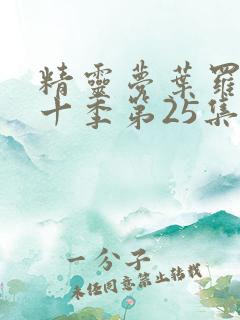 精靈夢葉羅
十季第25集
一分子
未经同意禁止转载